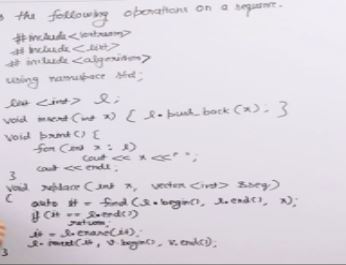 the following operations on a sequence.
#include<iostream>
#include<list>
#include<algorithm>
using namespace std;
list <int> l;
void insert(int x) { l.push_back(x); }
void print() {
for (int x : l)
cout << x <<" ";
cout << endl;
}
void replace (int x, vector<int> &seq)
{
auto it = find(l.begin(), l.end(), x);
if (it == l.end())
return;
it = l.erase(it);
l.insert(it, v.begin(), v.end());
}